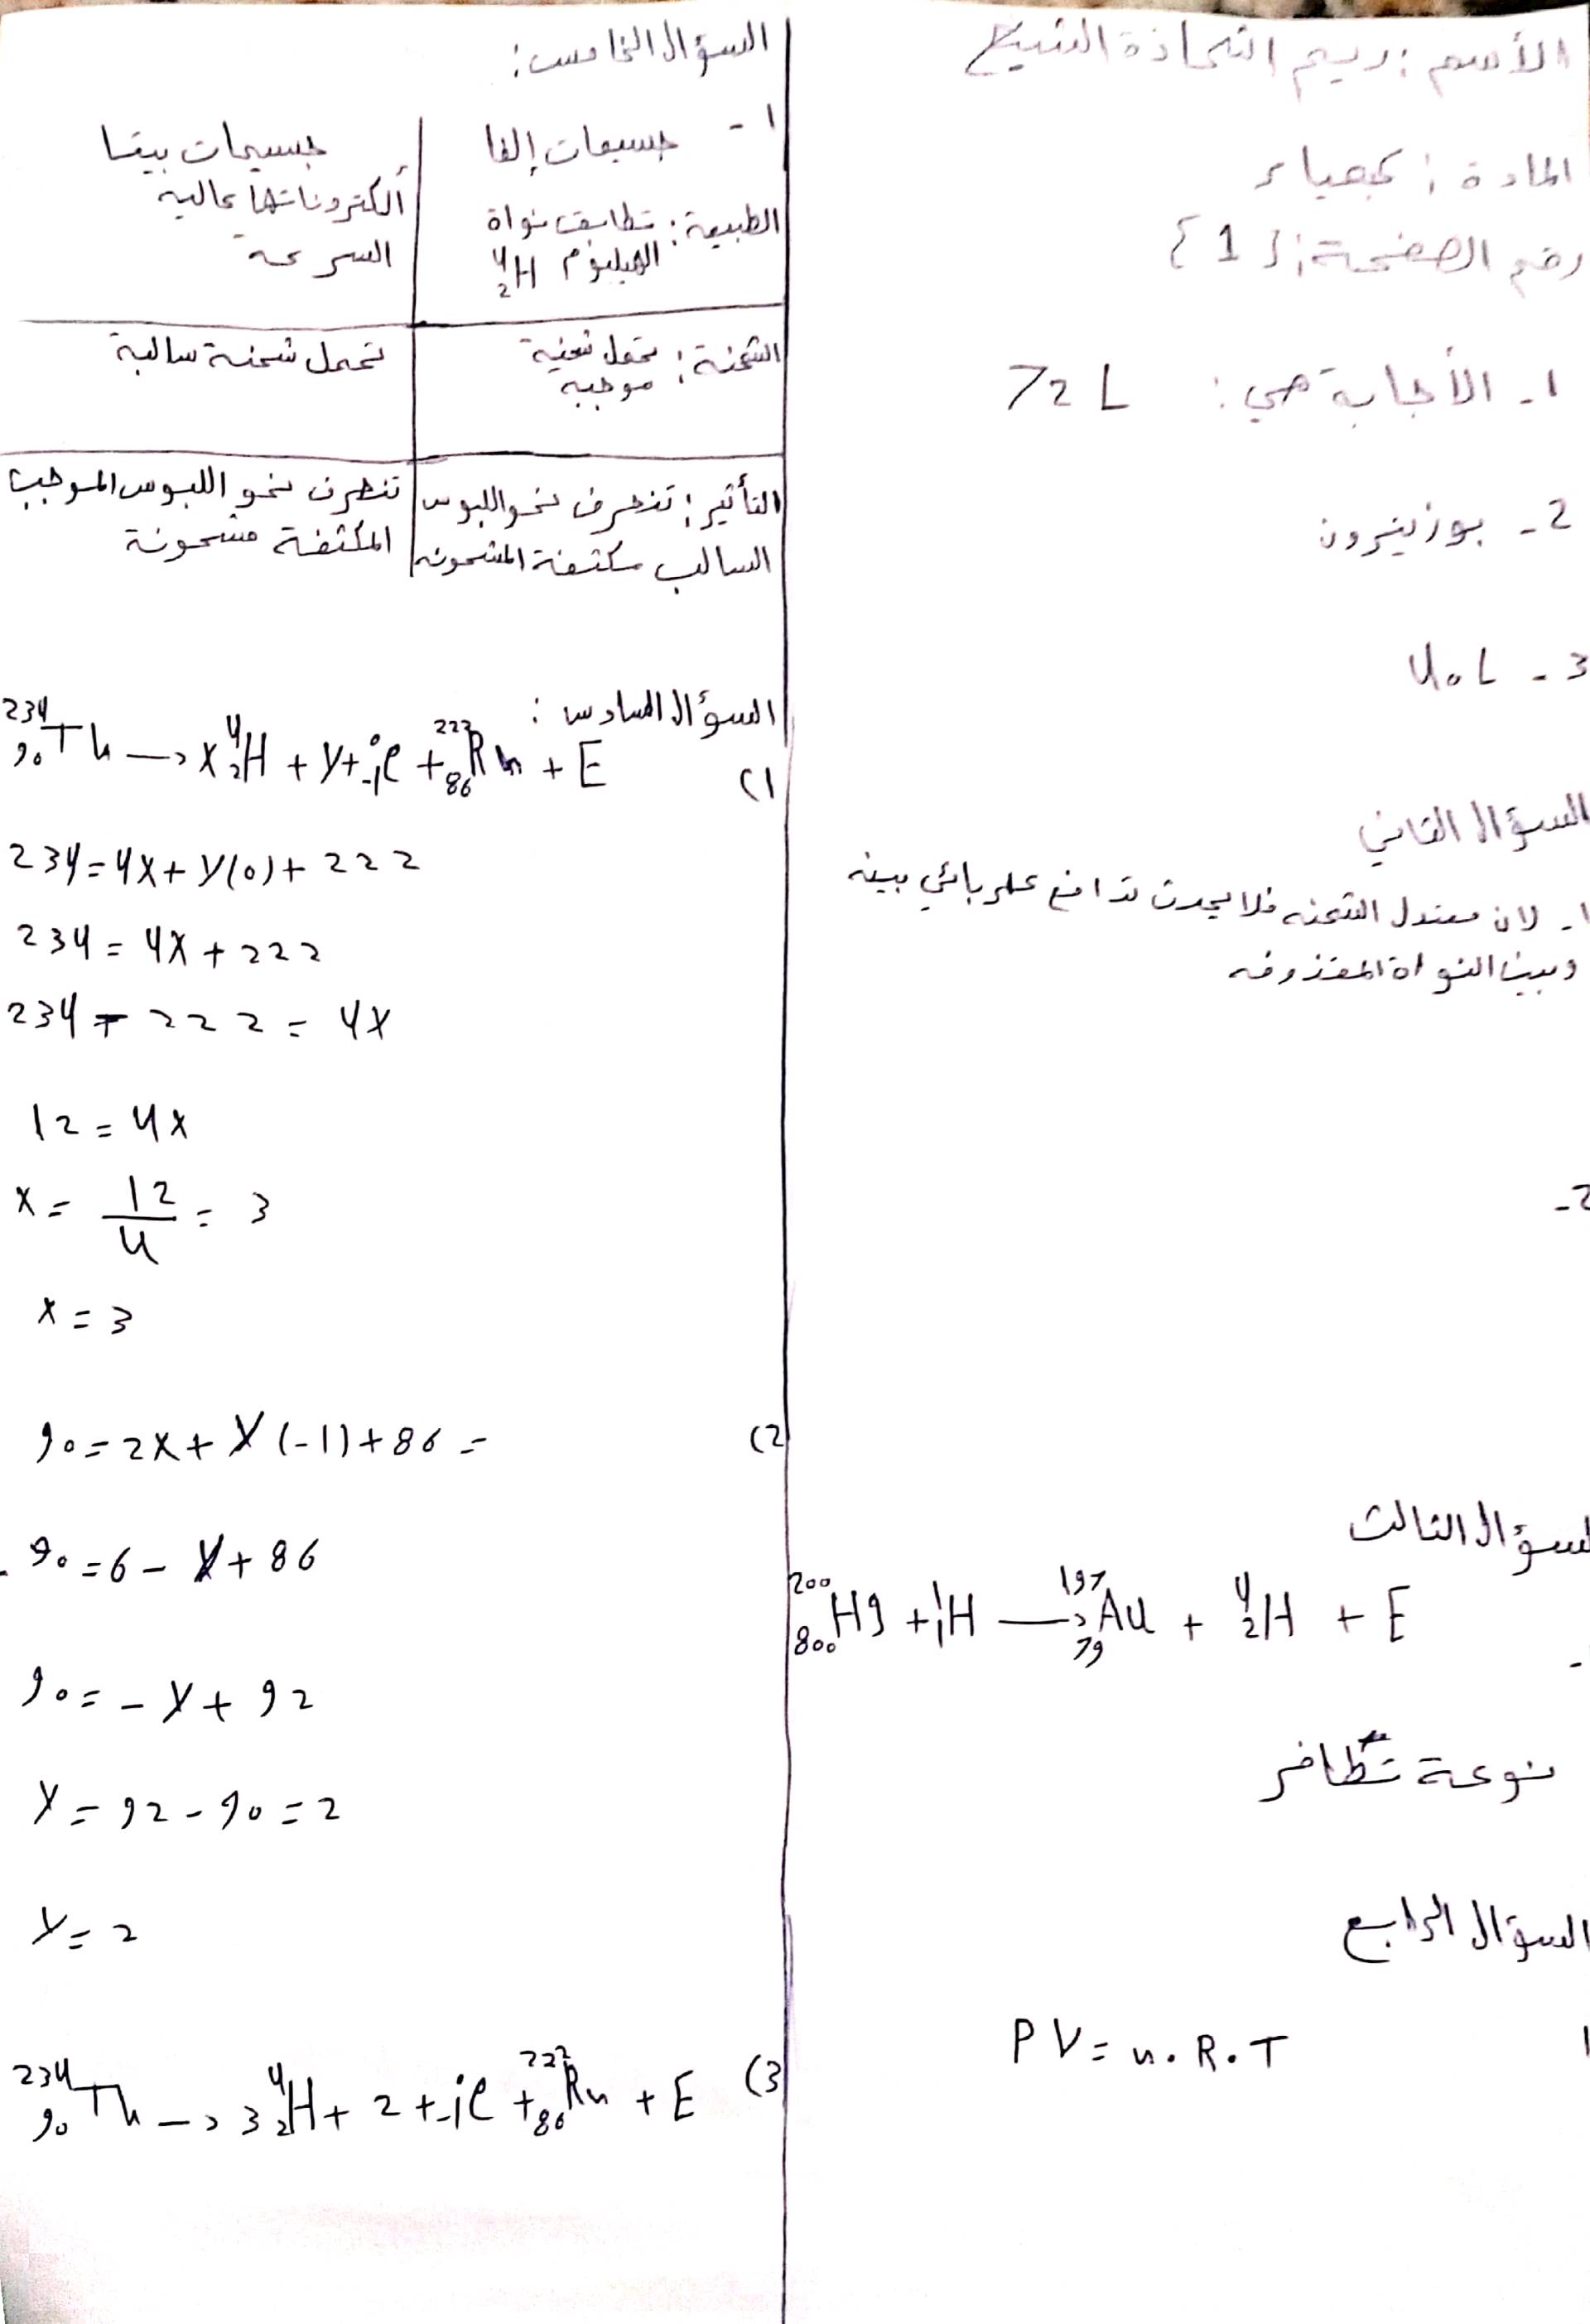 الأسم : ريم الشحاذة الشيخ
المادة : كيمياء
رقم الصفحة : {1}
1- الأجابة هي : 72 L
2- بوزيترون
3- 40L
السؤال الثاني
1- لان معتدل الشحنه فلا يحدث تدافع كهربائي بينه
وبين النواة المقذوفه
2-
السؤال الثالث
²⁰⁰₈₀₀Hg + ¹₁H → ¹⁹⁷₇₉Au + ⁴₂H + E
نوعة تطافر
السؤال الرابع
1 PV = n. R. T
السؤال الخامس :
1-
جسيمات إلفا | جسيمات بيتا
الطبيعة : تطابق نواة الهيليوم ⁴₂H | ألكترونات عالية السرعة
الشحنة : تحمل شحنة موجبه | تحمل شحنة سالبة
التأثير : تنحرف نحو اللبوس السالب مكثفة المشحونه | تنحرف نحو اللبوس الموجب المكثفة مشحونة
السؤال السادس :
(1 ²³⁴₉₀Th → x ⁴₂H + y + ⁰₋₁e + ²²²₈₆Rn + E
234 = 4x + y(0) + 222
234 = 4x + 222
234 - 222 = 4x
12 = 4x
x = 12/4 = 3
x = 3
(2 90 = 2x + y(-1) + 86 =
90 = 6 - y + 86
90 = - y + 92
y = 92 - 90 = 2
y = 2
(3 ²³⁴₉₀Th → 3 ⁴₂H + 2 + ₋₁e + ²²²₈₆Rn + E